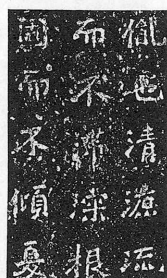 清流
而不滯深根
固而不傾憂